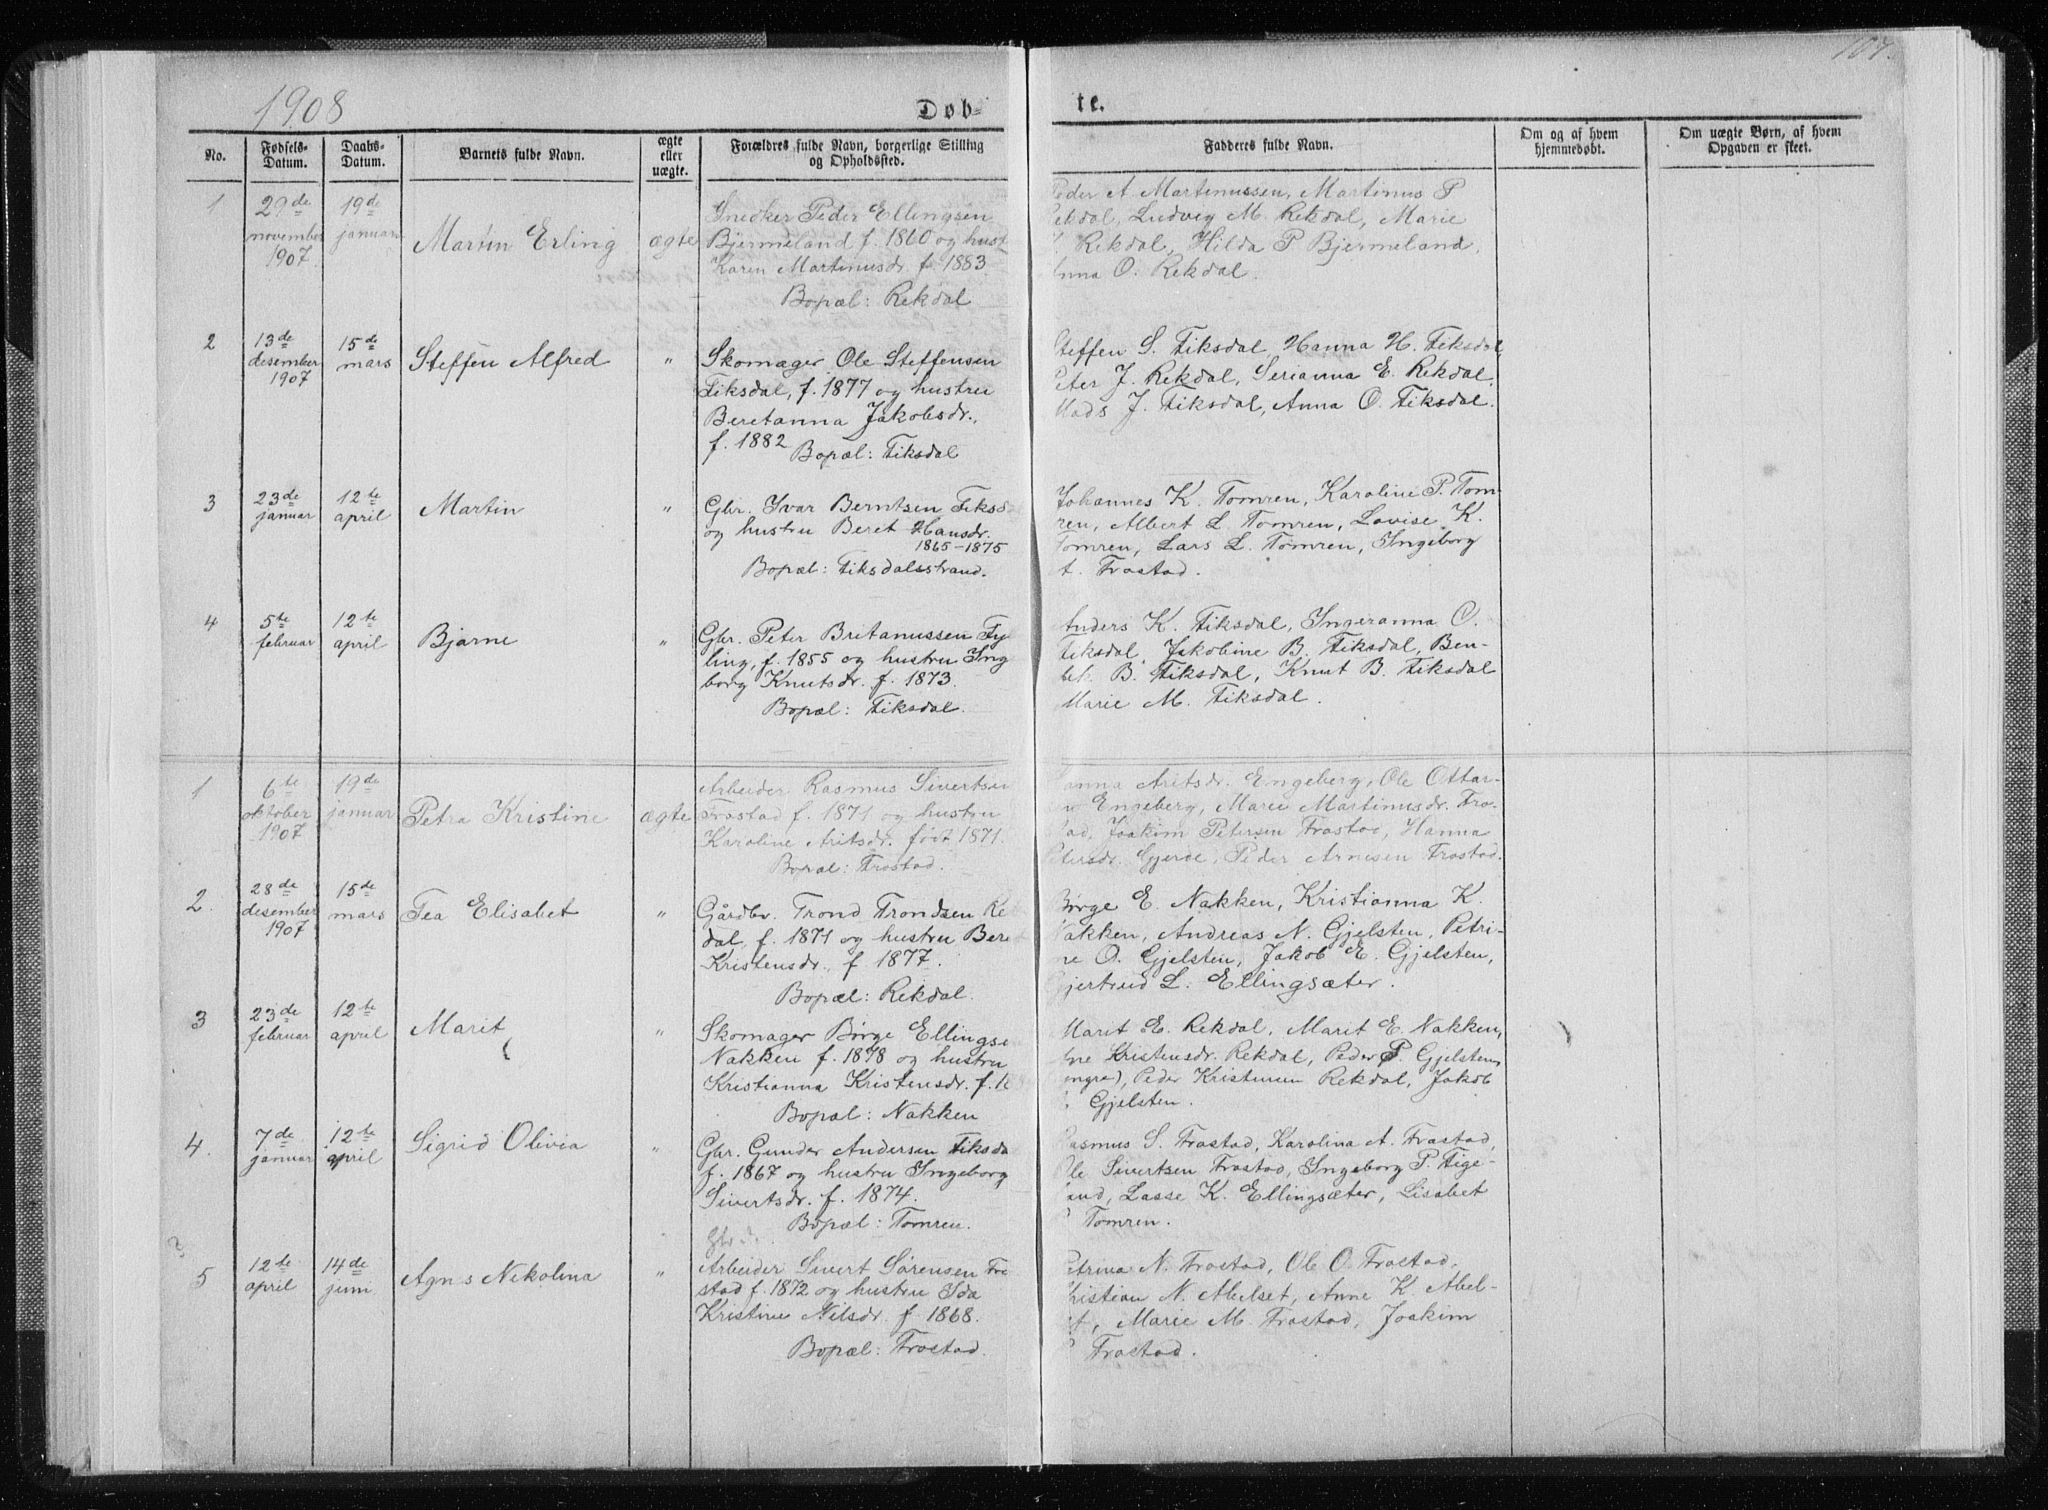 107.
1908
Døb- te.
No.
Fødsels-
Datum.
Daabs-
Datum.
Barnets fulde Navn.
ægte
eller
uægte.
Forældres fulde Navn, borgerlige Stilling
og Opholdssted.
Fadderes fulde Navn.
Om og af hvem
hjemmedøbt.
Om uægte Børn, af hvem
Opgaven er skeet.
1
29de
november
1907
19de
januar
Martin Erling
ægte
Snedker Peder Ellingsen
Bjermeland f. 1860 og hust
Karen Martinusdr. f. 1883.
Bopæl: Rekdal
Peder A. Martinussen, Martinus P
Rekdal, Ludvig M. Rekdal, Marie
Rekdal, Hilda P Bjermeland,
Anna O. Rekdal.
2
13de
desember
1907
15de
mars
Steffen Alfred
"
Skomager Ole Steffensen
Tiksdal, f. 1877 og hustru
Beretanna Jakobsdr.,
f. 1882
Bopæl: Tiksdal
Steffen S. Tiksdal, Hanna H. Tiksdal
Peter J. Rekdal, Serianna E. Rekdal,
Mads J. Tiksdal, Anna O. Tiksdal.
3
23de
januar
12te
april
Martin
"
Gbr. Ivar Berntsen Tiksd
og hustru Beret Hansdr.
1865-1875
Bopæl: Tiksdalsstrand.
Johannes K. Tomren, Karoline P. Tom-
ren, Albert L. Tomren, Lovise K.
Tomren, Lars L. Tomren, Ingeborg
t. Frostad.
4
5te
februar
12te
april
Bjarne
"
Gbr. Peter Britanussen Fy
ling, f. 1855 og hustru Ing
borg Knutsdr. f. 1873.
Bopæl: Tiksdal.
Anders K. Tiksdal, Ingeranna O.
Tiksdal, Jakobine B. Tiksdal, Ben-
B. Tiksdal, Knut B. Tiksdal
Marie M. Tiksdal.
1
6te
oktober
1907
19de
januar
Petra Kristine
ægte
Arbeider Rasmus Sivertsen
Frostad f. 1871 og hustru
Karoline Aritsdr. født 1871.
Bopæl: Frostad.
Hanna Aritsdr. Engeberg, Ole Ottar-
Engeberg, Marie Martinusdr. Fro-
stad, Joakim Petersen Frostad, Hanna
Petersdr. Gjerde, Peder Arnesen Frostad.
2.
28de
desember
1907
15de
mars
Tea Elisabet
"
Gårdbr. Trond Trondsen Re
dal, f. 1871 og hustru Bere
Kristensdr., f 1877.
Bopæl: Rekdal.
Børge E. Nakken, Kristianna K.
Nakken, Andreas N. Gjelsten, Petri-
ne O. Gjelsten, Jakob E. Gjelsten,
Gjertrud L. Ellingsæter.
3
23de
februar
12te
april
Marit
"
Skomager Børge Ellingse
Nakken f. 1878 og hustru
Kristianna Kristensdr. f. 18
Bopæl: Nakken
Marit E. Rekdal, Marit E. Nakken,
Ane Kristensdr. Rekdal, Peder P. Gjelsten
(yngre), Peder Kristensen Rekdal, Jakob
Gjelsten.
4.
7de
januar
12te
april
Sigrid Olivia
"
Gbr. Gunder Andersen Tiksda
f. 1867 og hustru Ingeborg
Sivertsdr. f. 1874.
Bopæl: Tomren.
Rasmus S. Frostad, Karolina A. Frostad,
Ole Sivertsen Frostad, Ingeborg P. Fige-
land, Lasse K. Ellingsæter, Lisabet
Tomren.
5
12te
april
14de
juni
Agnes Nikolina
"
Arbeider Sivert Sørensen Fro
stad f. 1872 og hustru Ida
Kristine Nilsdr. f 1868.
Bopæl: Frostad.
Petrina N. Frostad, Ole O. Frostad,
Kristian N. Abelset, Anne K. Abel-
set, Marie M. Frostad, Joakim
Frostad.